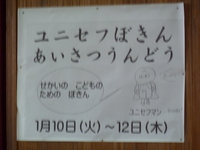 ユニセフぼきん
あいさつうんどう
せかいの こどもの
ための ぼきん
ユニセフマン
1月10日(火)~12日(木)